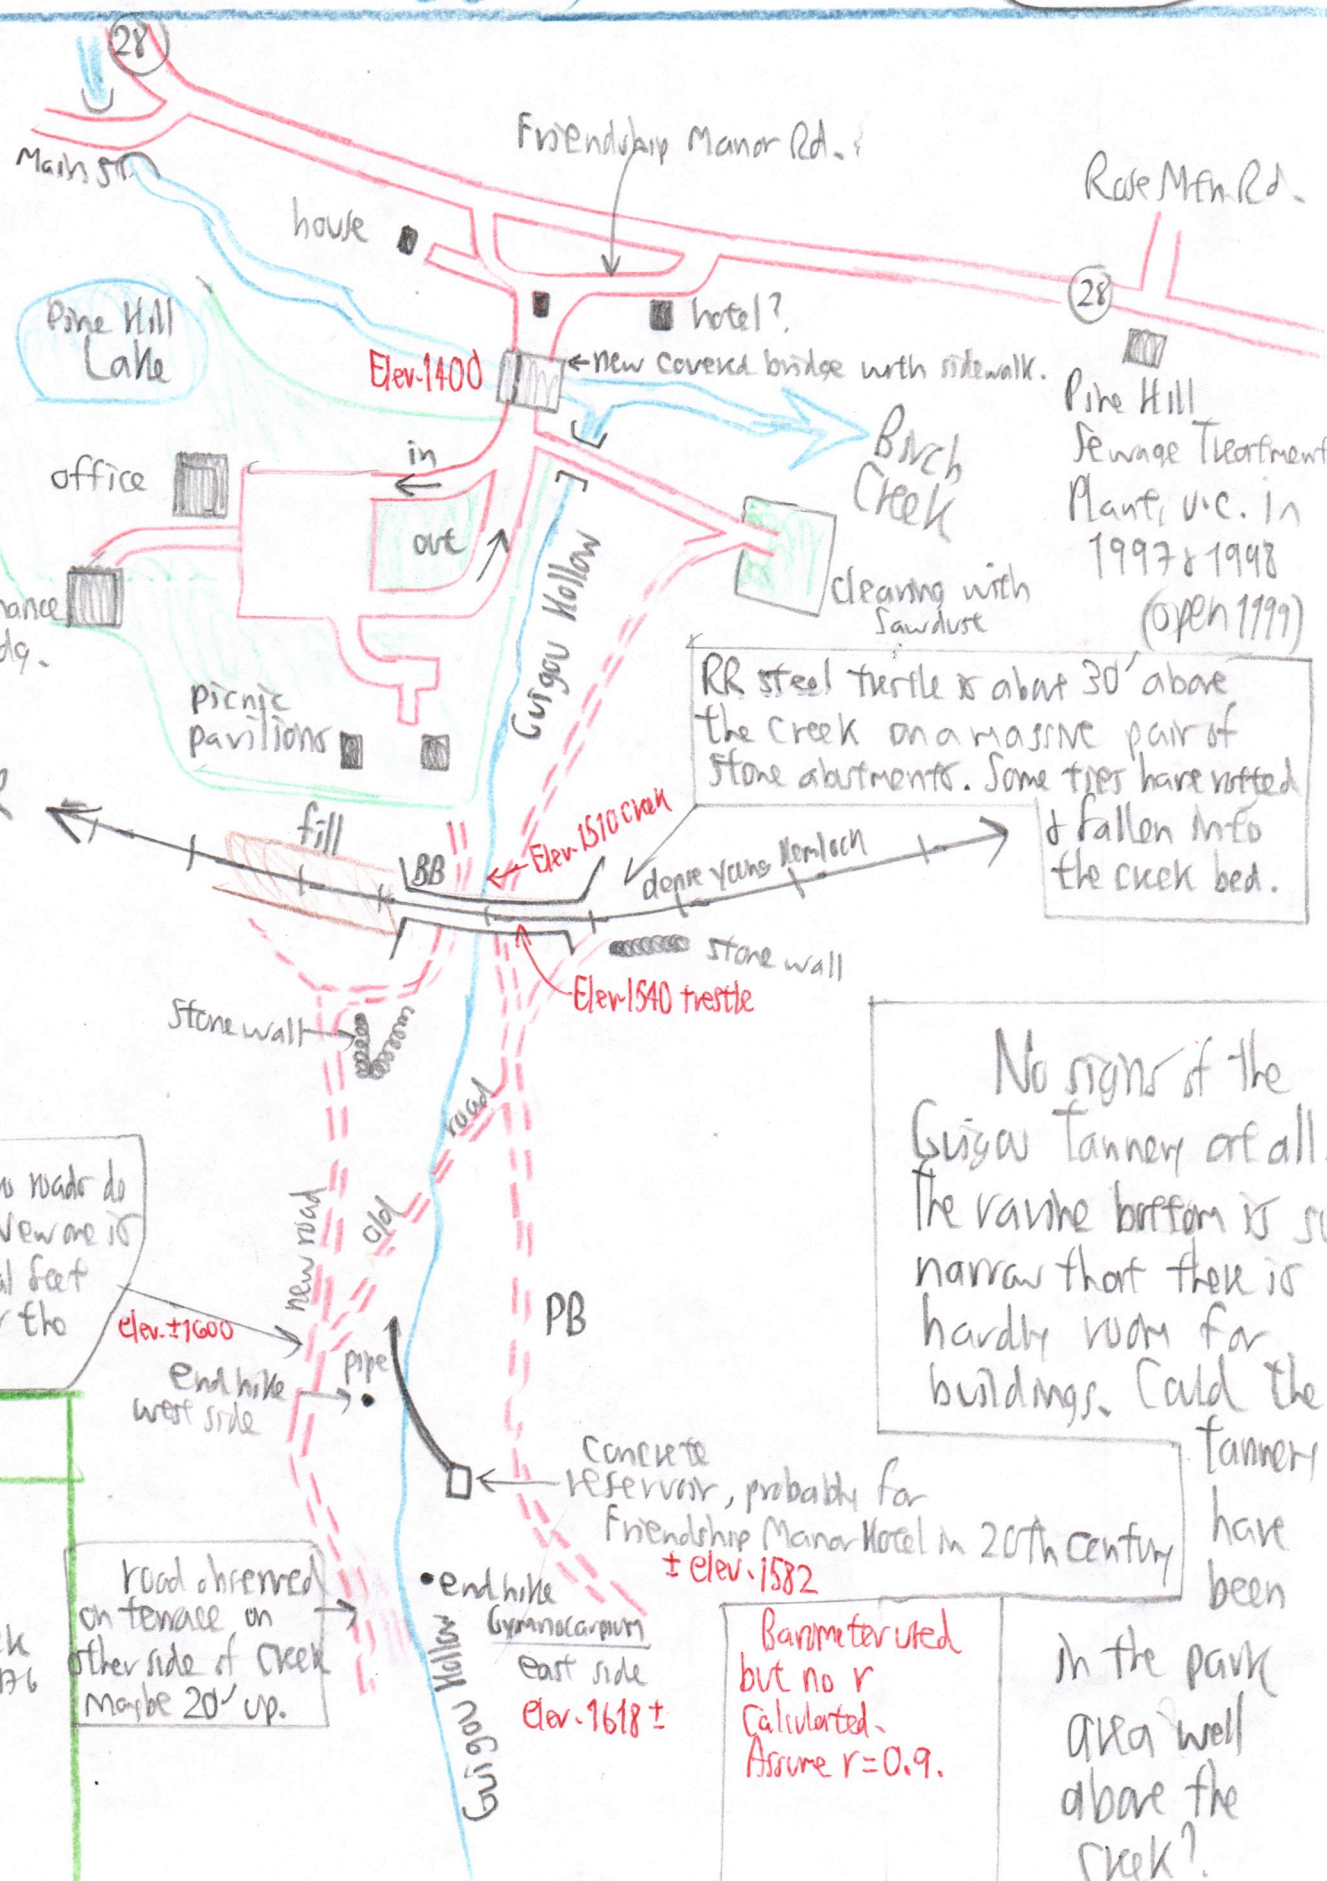 28
Main St
Friendship Manor Rd.
Rose Mtn. Rd.
house
28
hotel?
Pine Hill
Lake
Elev. 1400
←new covered bridge with sidewalk.
Birch
Creek
Pine Hill
Sewage Treatment
Plant, u.c. in
1997 & 1998
(open 1999)
office
in
out
Guigou Hollow
clearing with
sawdust
nance
dg.
picnic
pavilions
RR steel trestle is about 30' above
the creek on a massive pair of
stone abutments. Some ties have rotted
& fallen into
the creek bed.
R
fill
BB
Elev. 1510 creek
dense young Hemlock
stone wall
Elev. 1540 trestle
Stone wall
No signs of the
Guigou Tannery at all.
The ravine bottom is so
narrow that there is
hardly room for
buildings. Could the
tannery
have
been
in the park
area well
above the
creek?
road
old
new road
wo roads do
New one is
al feet
r the
elev. ±1600
PB
pipe
end hike
west side
concrete
reservoir, probably for
Friendship Manor Hotel in 20th century
± elev. 1582
road observed
on terrace on
other side of creek
Maybe 20' up.
ek
176
end hike
Gymnocarpium
east side
elev. 1618 ±
Guigou Hollow
Barometer used
but no r
calculated.
Assume r=0.9.